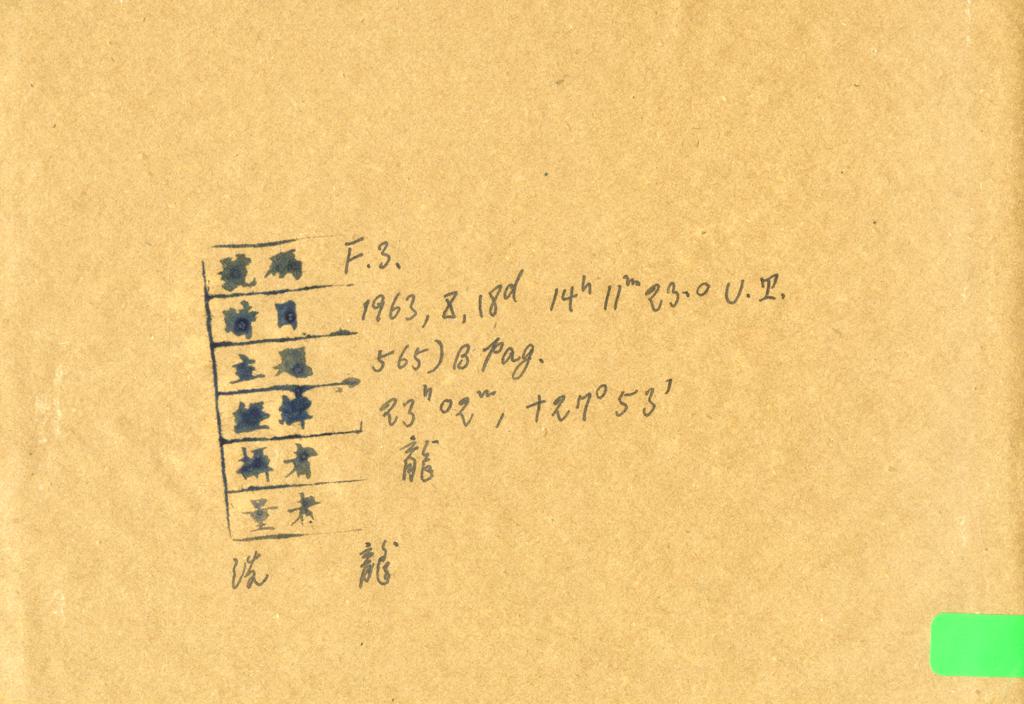 號碼 F.3.
時日 1963, 8, 18d 14h 11m 23.0 U.T.
主題 565) B Pag.
經緯 23h 02m, +27° 53'
攝者 龍
量者
洗 龍